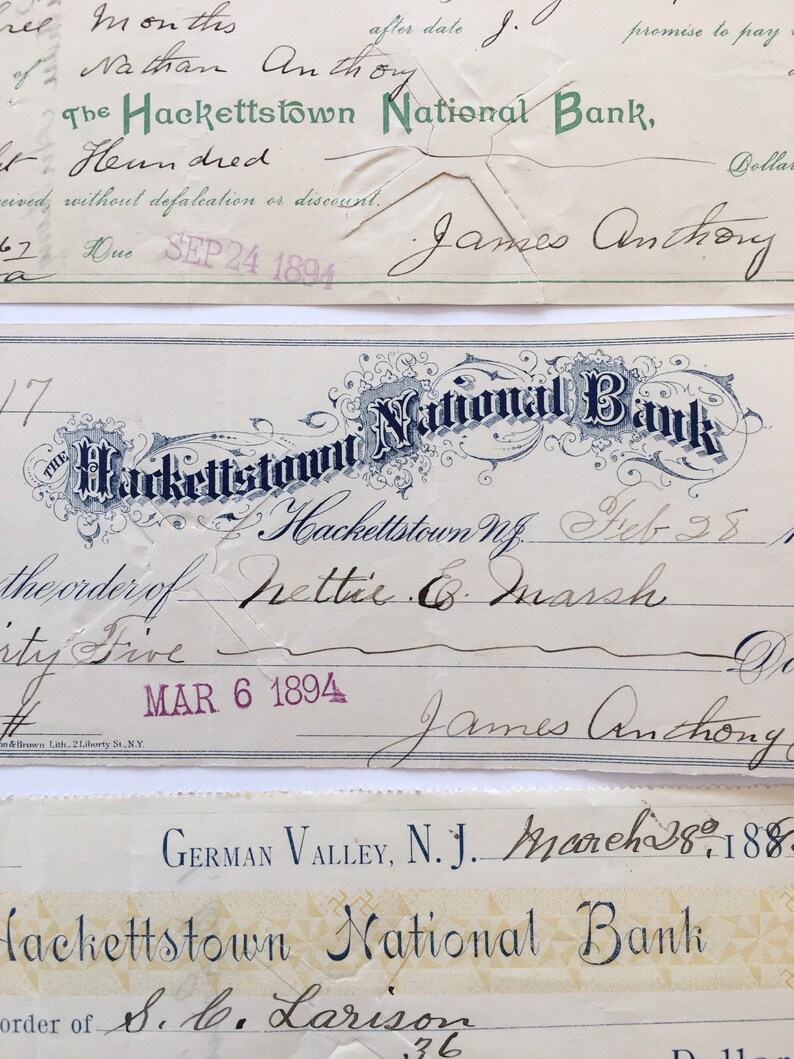 Months after date J. promise to pay
of Nathan Anthony
The Hackettstown National Bank,
Hundred Dollar
without defalcation or discount.
67 Due SEP 24 1894 James Anthony
17
THE Hackettstown National Bank
Hackettstown N.J. Feb 28
the order of Nettie E. Marsh
Five Do
MAR 6 1894
# James Anthony
& Brown Lith., 2 Liberty St., N.Y.
GERMAN VALLEY, N. J. March 28, 188
Hackettstown National Bank
order of S. C. Larison
36
Dollar